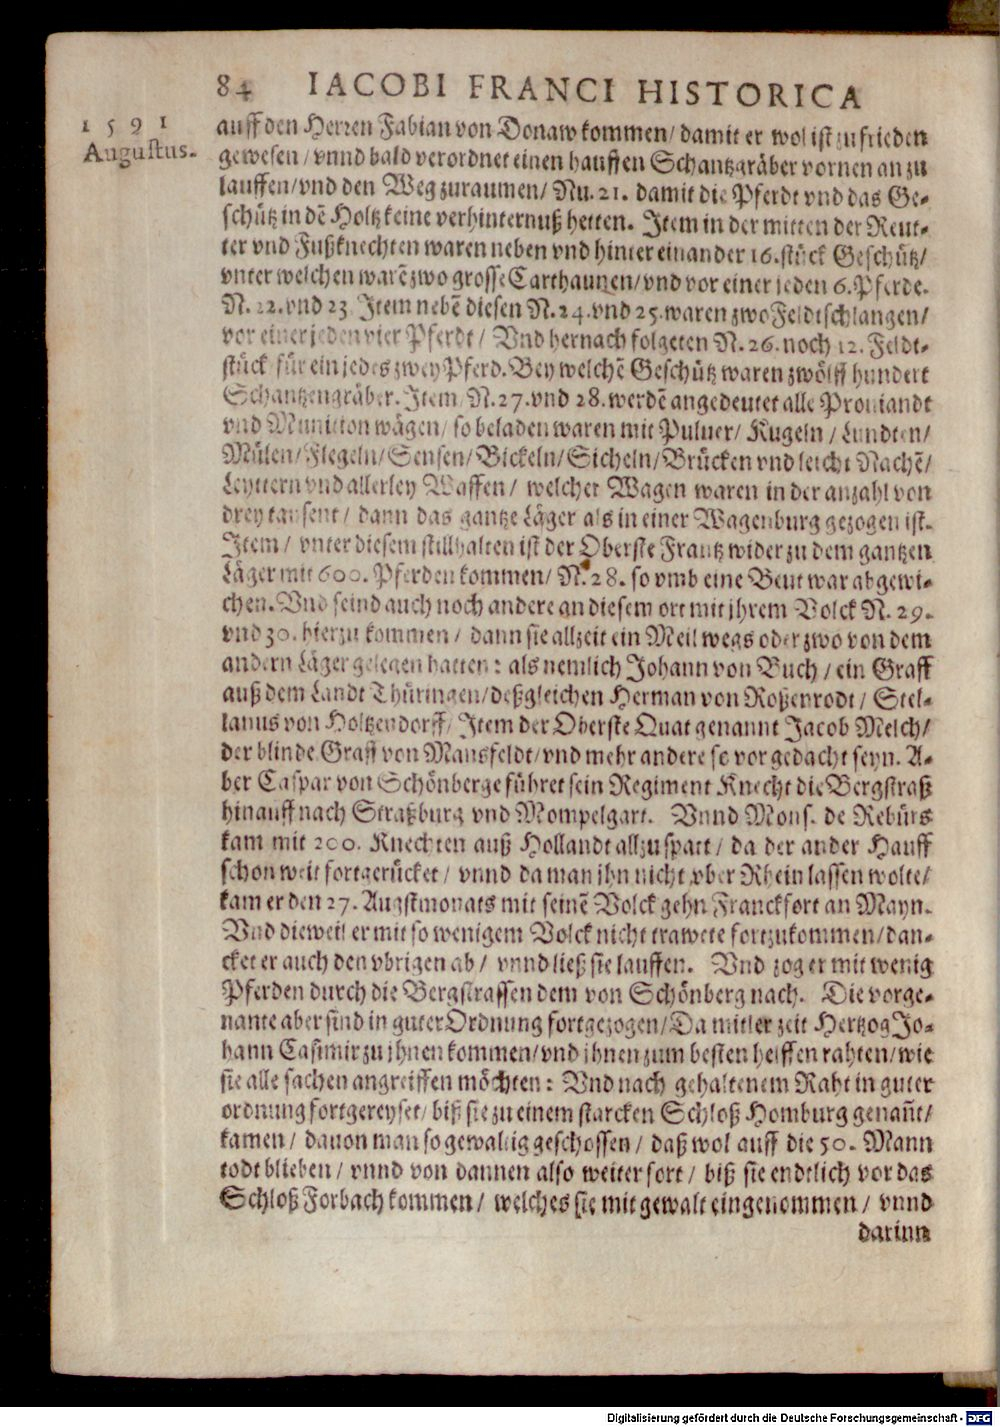 84 IACOBI FRANCI HISTORICA
1591
Augustus.
auff den Herren Fabian von Donaw kommen / damit er wol ist zu frieden
gewesen / vnnd bald verordnet einen hauffen Schantzgräber vornen an zu
lauffen / vnd den Weg zuraumen / Nu. 21. damit die Pferdt vnd das Ge-
schütz in dē Holtz keine verhinternuß hetten. Item in der mitten der Reut-
ter vnd Fußknechten waren neben vnd hinter einander 16. stück Geschütz /
vnter welchen warē zwo grosse Carthaunen / vnd vor einer jeden 6. Pferde.
N. 22. vnd 23. Item nebē diesen N. 24. vnd 25. waren zwo Feldtschlangen /
vor einer jeden vier Pferdt / Vnd hernach folgeten N. 26. noch 12. Feldt-
stück für ein jedes zwey Pferd. Bey welchē Geschütz waren zwölff hundert
Schantzengräber. Item N. 27. vnd 28. werdē angedeutet alle Prouiandt
vnd Munition wägen / so beladen waren mit Puluer / Kugeln / Lundten /
Mülen / Flegeln / Sensen / Bickeln / Sicheln / Brücken vnd leicht Nachē /
Leyttern vnd allerley Waffen / welcher Wagen waren in der anzahl von
drey tausent / dann das gantze Läger als in einer Wagenburg gezogen ist.
Item / vnter diesem stillhalten ist der Oberste Frantz wider zu dem gantzen
Läger mit 600. Pferden kommen / N. 28. so vmb eine Beut war abgewi-
chen. Vnd seind auch noch andere an diesem ort mit jhrem Volck N. 29.
vnd 30. hierzu kommen / dann sie allzeit ein Meil wegs oder zwo von dem
andern Läger gelegen hatten : als nemlich Johann von Buch / ein Graff
auß dem Landt Thüringen / deßgleichen Herman von Roßenrodt / Stel-
lanus von Holtzendorff / Item der Oberste Quat genannt Jacob Melch /
der blinde Graff von Mansfeldt / vnd mehr andere so vor gedacht seyn. A-
ber Caspar von Schönberge führet sein Regiment Knecht die Bergstraß
hinauff nach Straßburg vnd Mompelgart. Vnnd Mons. de Rebürs
kam mit 200. Knechten auß Hollandt allzu spatt / da der ander Hauff
schon weit fortgerücket / vnnd da man jhn nicht vber Rhein lassen wolte /
kam er den 27. Augstmonats mit seinē Volck gehn Franckfort an Mayn.
Vnd dieweil er mit so wenigem Volck nicht trawete fortzukommen / dan-
cket er auch den vbrigen ab / vnnd ließ sie lauffen. Vnd zog er mit wenig
Pferden durch die Bergstrassen dem von Schönberg nach. Die vorge-
nante aber sind in guter Ordnung fortgezogen / Da mitler zeit Hertzog Jo-
hann Casimir zu jhnen kommen / vnd jhnen zum besten helffen rahten / wie
sie alle sachen angreiffen möchten : Vnd nach gehaltenem Raht in guter
ordnung fortgereyset / biß sie zu einem starcken Schloß Homburg genañt /
kamen / dauon man so gewaltig geschossen / daß wol auff die 50. Mann
todt blieben / vnnd von dannen also weiter fort / biß sie endtlich vor das
Schloß Forbach kommen / welches sie mit gewalt eingenommen / vnnd
darinn
Digitalisierung gefördert durch die Deutsche Forschungsgemeinschaft - DFG